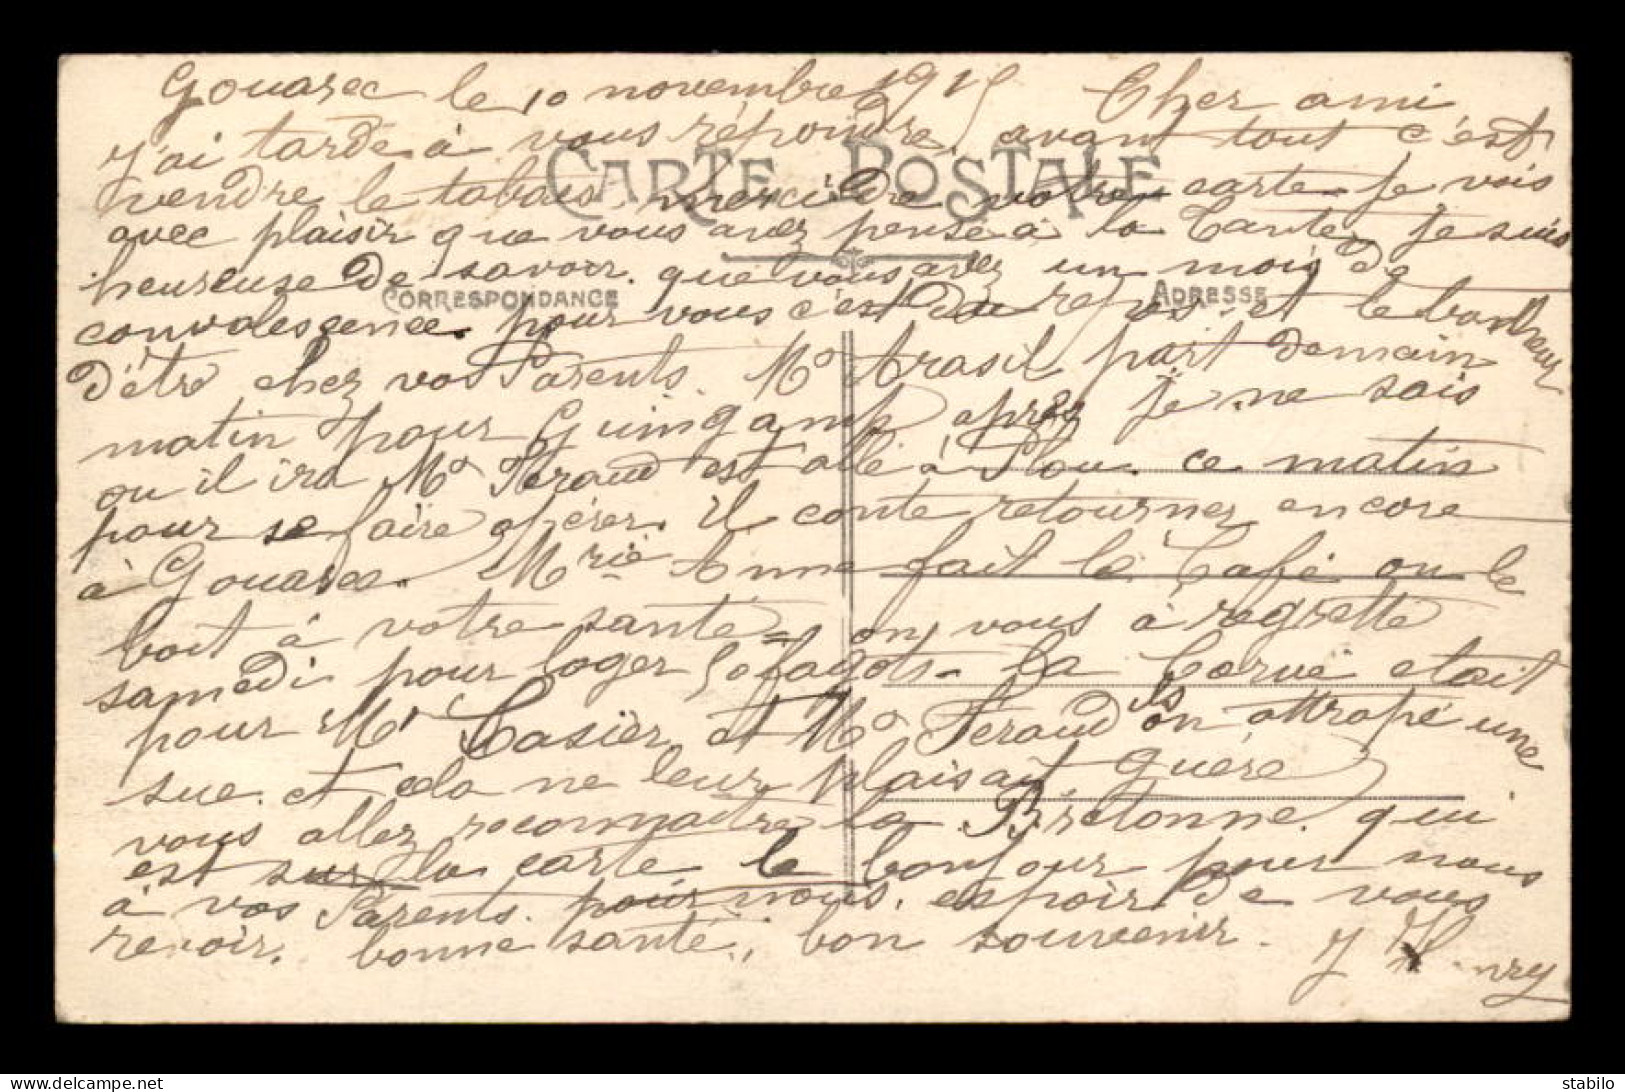 Gouarec le 10 novembre 1915 Cher ami
j'ai tardé à vous répondre, avant tout c'est
CARTE POSTALE
vendre le tabais. merci de votre carte je vois
avec plaisir que vous avez pensé à la Tante, je suis
heureuse de savoir que vous avez un mois de
CORRESPONDANCE
ADRESSE
convalescence. pour vous c'est du repos. et le bonheur
d'être chez vos Parents. Mr Arasil part demain
matin pour Guingamp après je ne sais
ou il ira Mr Feraud est allé à Plou. ce matin
pour se faire opérer. il conte retourner encore
à Gouarec. Mrie Anne fait le Café on le
boit à votre santé = on vous à regretté
samedi pour loger 50 fagots. la Corvé etait
pour Mr Casier et Mr Feraud ils on attrapé une
sue. et cela ne leur plaisait guére
vous allez reconnaitre la Bretonne qui
est sur la carte le bonjour pour nous
à vos Parents. pour nous. espoir de vous
revoir. bonne santé, bon souvenir. J Henry
stabilo